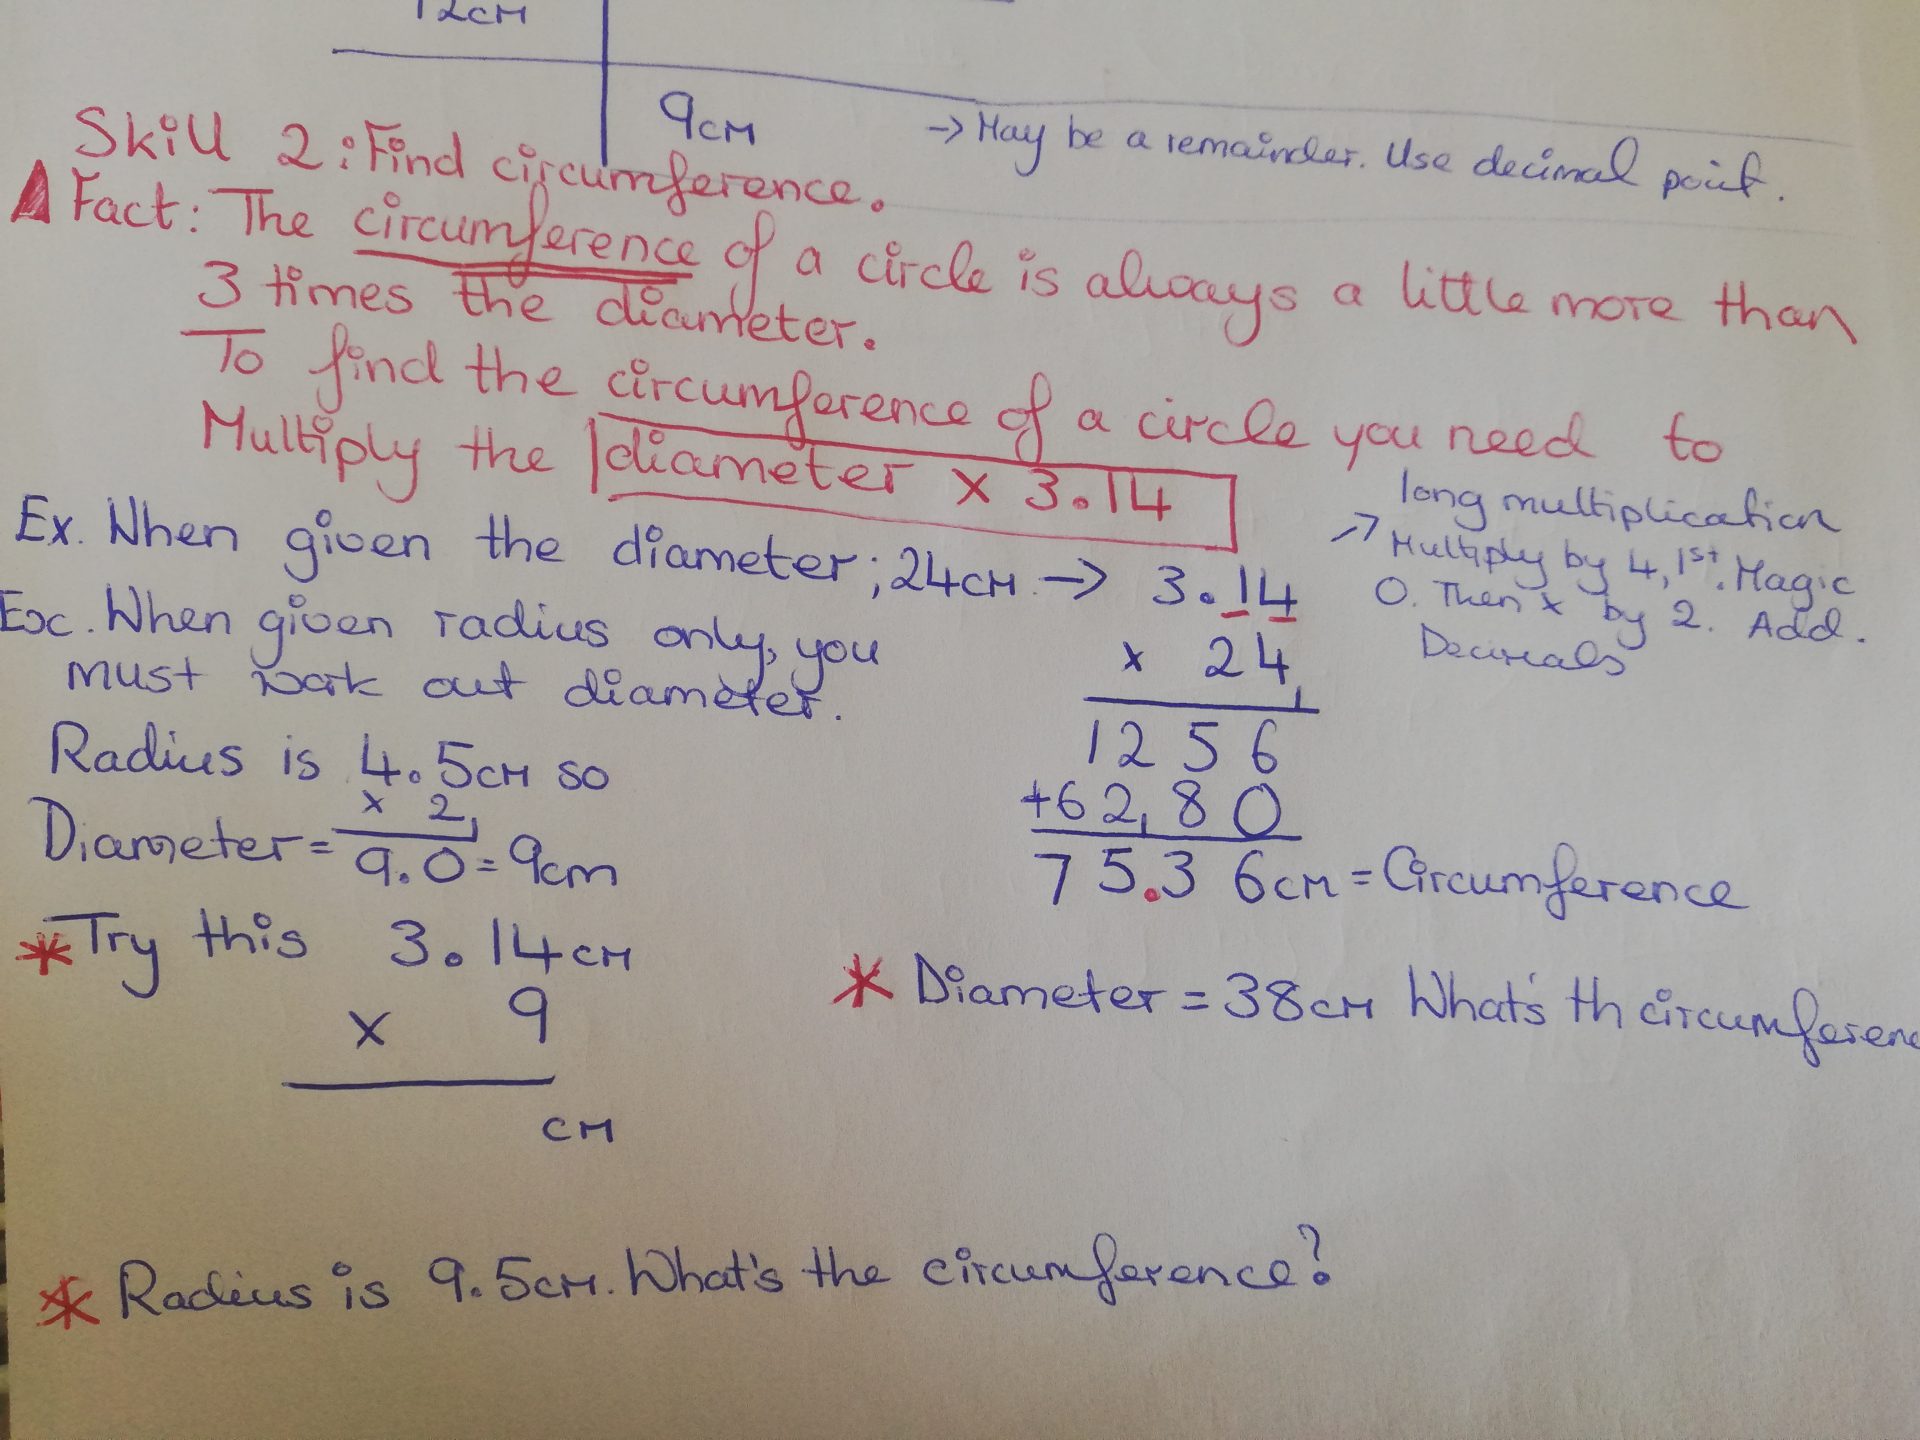 12cm
9cm
-> May be a remainder. Use decimal point.
Skill 2: Find circumference.
Fact: The circumference of a circle is always a little more than
3 times the diameter.
To find the circumference of a circle you need to
Multiply the diameter x 3.14
Ex. When given the diameter; 24cm -> 3.14
x 24
1256
+62,80
75.36cm = Circumference
long multiplication
-> Multiply by 4, 1st. Magic
0. Then x by 2. Add.
Decimals
Ex. When given radius only, you
must work out diameter.
Radius is 4.5cm so
x 2
Diameter = 9.0 = 9cm
* Try this 3.14cm
x 9
cm
* Diameter = 38cm What's th circumferenc
* Radius is 9.5cm. What's the circumference?